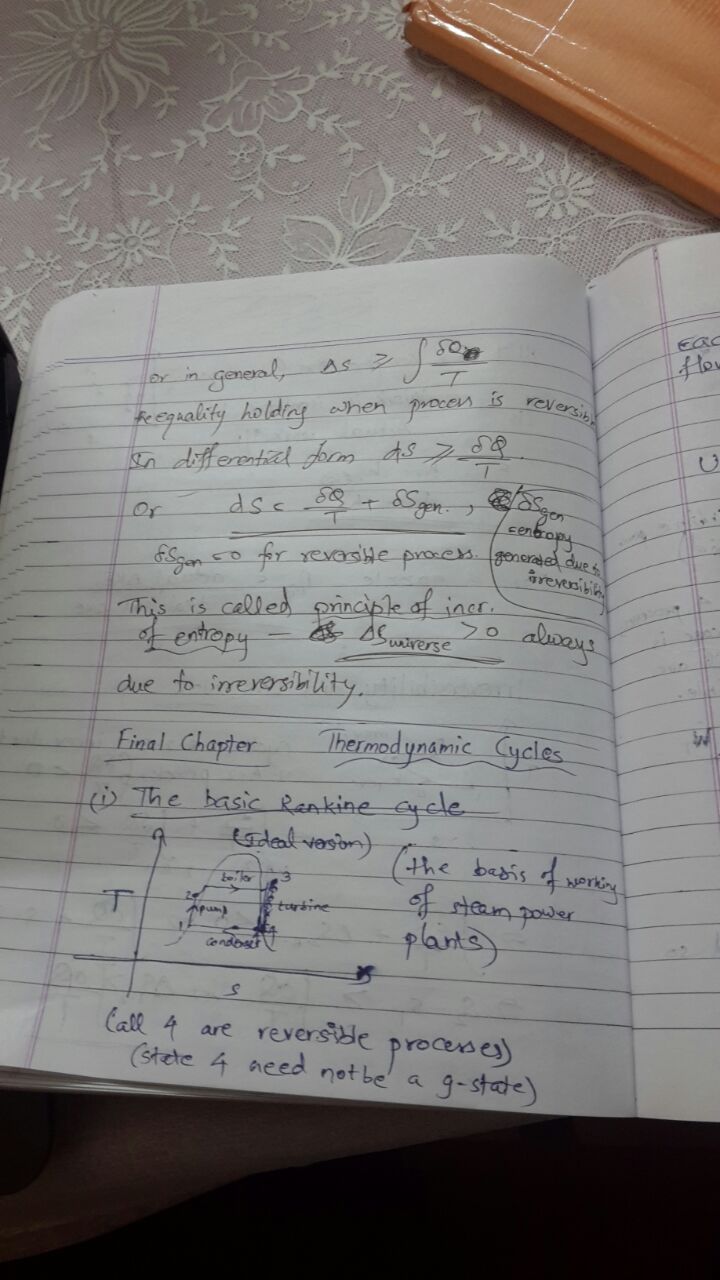 or in general, ΔS ≥ ∫ δQ / T
the equality holding when process is reversib
In differential form dS ≥ δQ / T.
Or dS = δQ / T + δSgen. , δSgen
= entropy
generated due to
irreversibility
δSgen = 0 for reversible process.
This is called principle of incr.
of entropy – ΔSuniverse > 0 always
due to irreversibility.
Final Chapter Thermodynamic Cycles
(i) The basic Rankine cycle
(Ideal version)
(the basis of working
of steam power
plants)
T
boiler 3
2
pump turbine
1 4
condenser
S
(all 4 are reversible processes)
(state 4 need not be a g-state)
Eac
flow
U
W